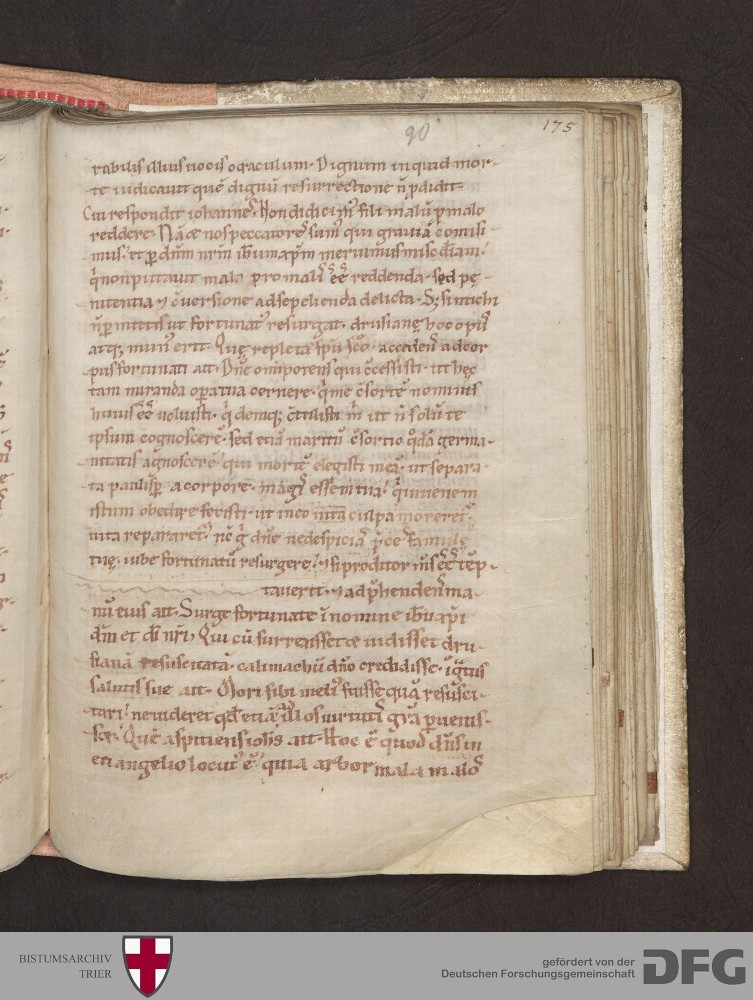 90
175
rabilis illius uocis oraculum. Dignum inquid mor-
te iudicauit quē dignū resurrectione n̄ pdidit.
Cui respondit iohannes. Non didicim' fili malū p malo
reddere. Nā & nos peccatores sum' qui grauia comisi-
mus. et p dn̄m nr̄m ih̄um xp̄m meruimus misc̄diam.
q̄ non putauit mala pro malis ēē reddenda. sed pę-
nitentia & c̄uersione ad sepelienda delicta. S; si michi
n̄ pmittis ut fortunat' resurgat. drusianę hoc op'
atq; mun' erit. Quę repleta sp̄u sc̄o. accedens ad cor
pus fortunati ait. Dn̄e omipotens qui c̄cessisti. ut hęc
tam miranda opera tua cernere. q̄ me c̄sorte nominis
huius ēē uoluisti. q̄ deniq; m̄ ut n̄ solū te
ipsum cognoscere. sed etiā maritū c̄sortio q̄dā germa-
nitatis agnoscere. qui morte elegisti meā. ut separa-
ta paulisp a corpore. magis essem tua. q̄ iuuenem
istum obedire fecisti. ut in eo uita culpa moreret'
uita repararet'. nc̄ g̊ dn̄e ne despicias pce famulę
tuę. iube fortunatū resurgere. & si proditor m̄s ēē tēp-
tauerit. & adp̄hendens ma-
nū eius ait. Surge fortunate in nomine ih̄u xp̄i
dn̄i et di nr̄i. Qui cū surrexisset & uidisset dru-
sianā resuscitatā. calimachū dn̄o credidisse. ign̄'
salutis sue ait. Mori sibi meli' fuisse quā resusci-
tari. ne uideret qd etiā illos uirtutis gr̄a puenis-
set. Quē aspitiens ioh̄s ait. Hoc ē quod dn̄s in
euangelio locut' ē. quia arbor mala malos
BISTUMSARCHIV
TRIER
gefördert von der
Deutschen Forschungsgemeinschaft
DFG